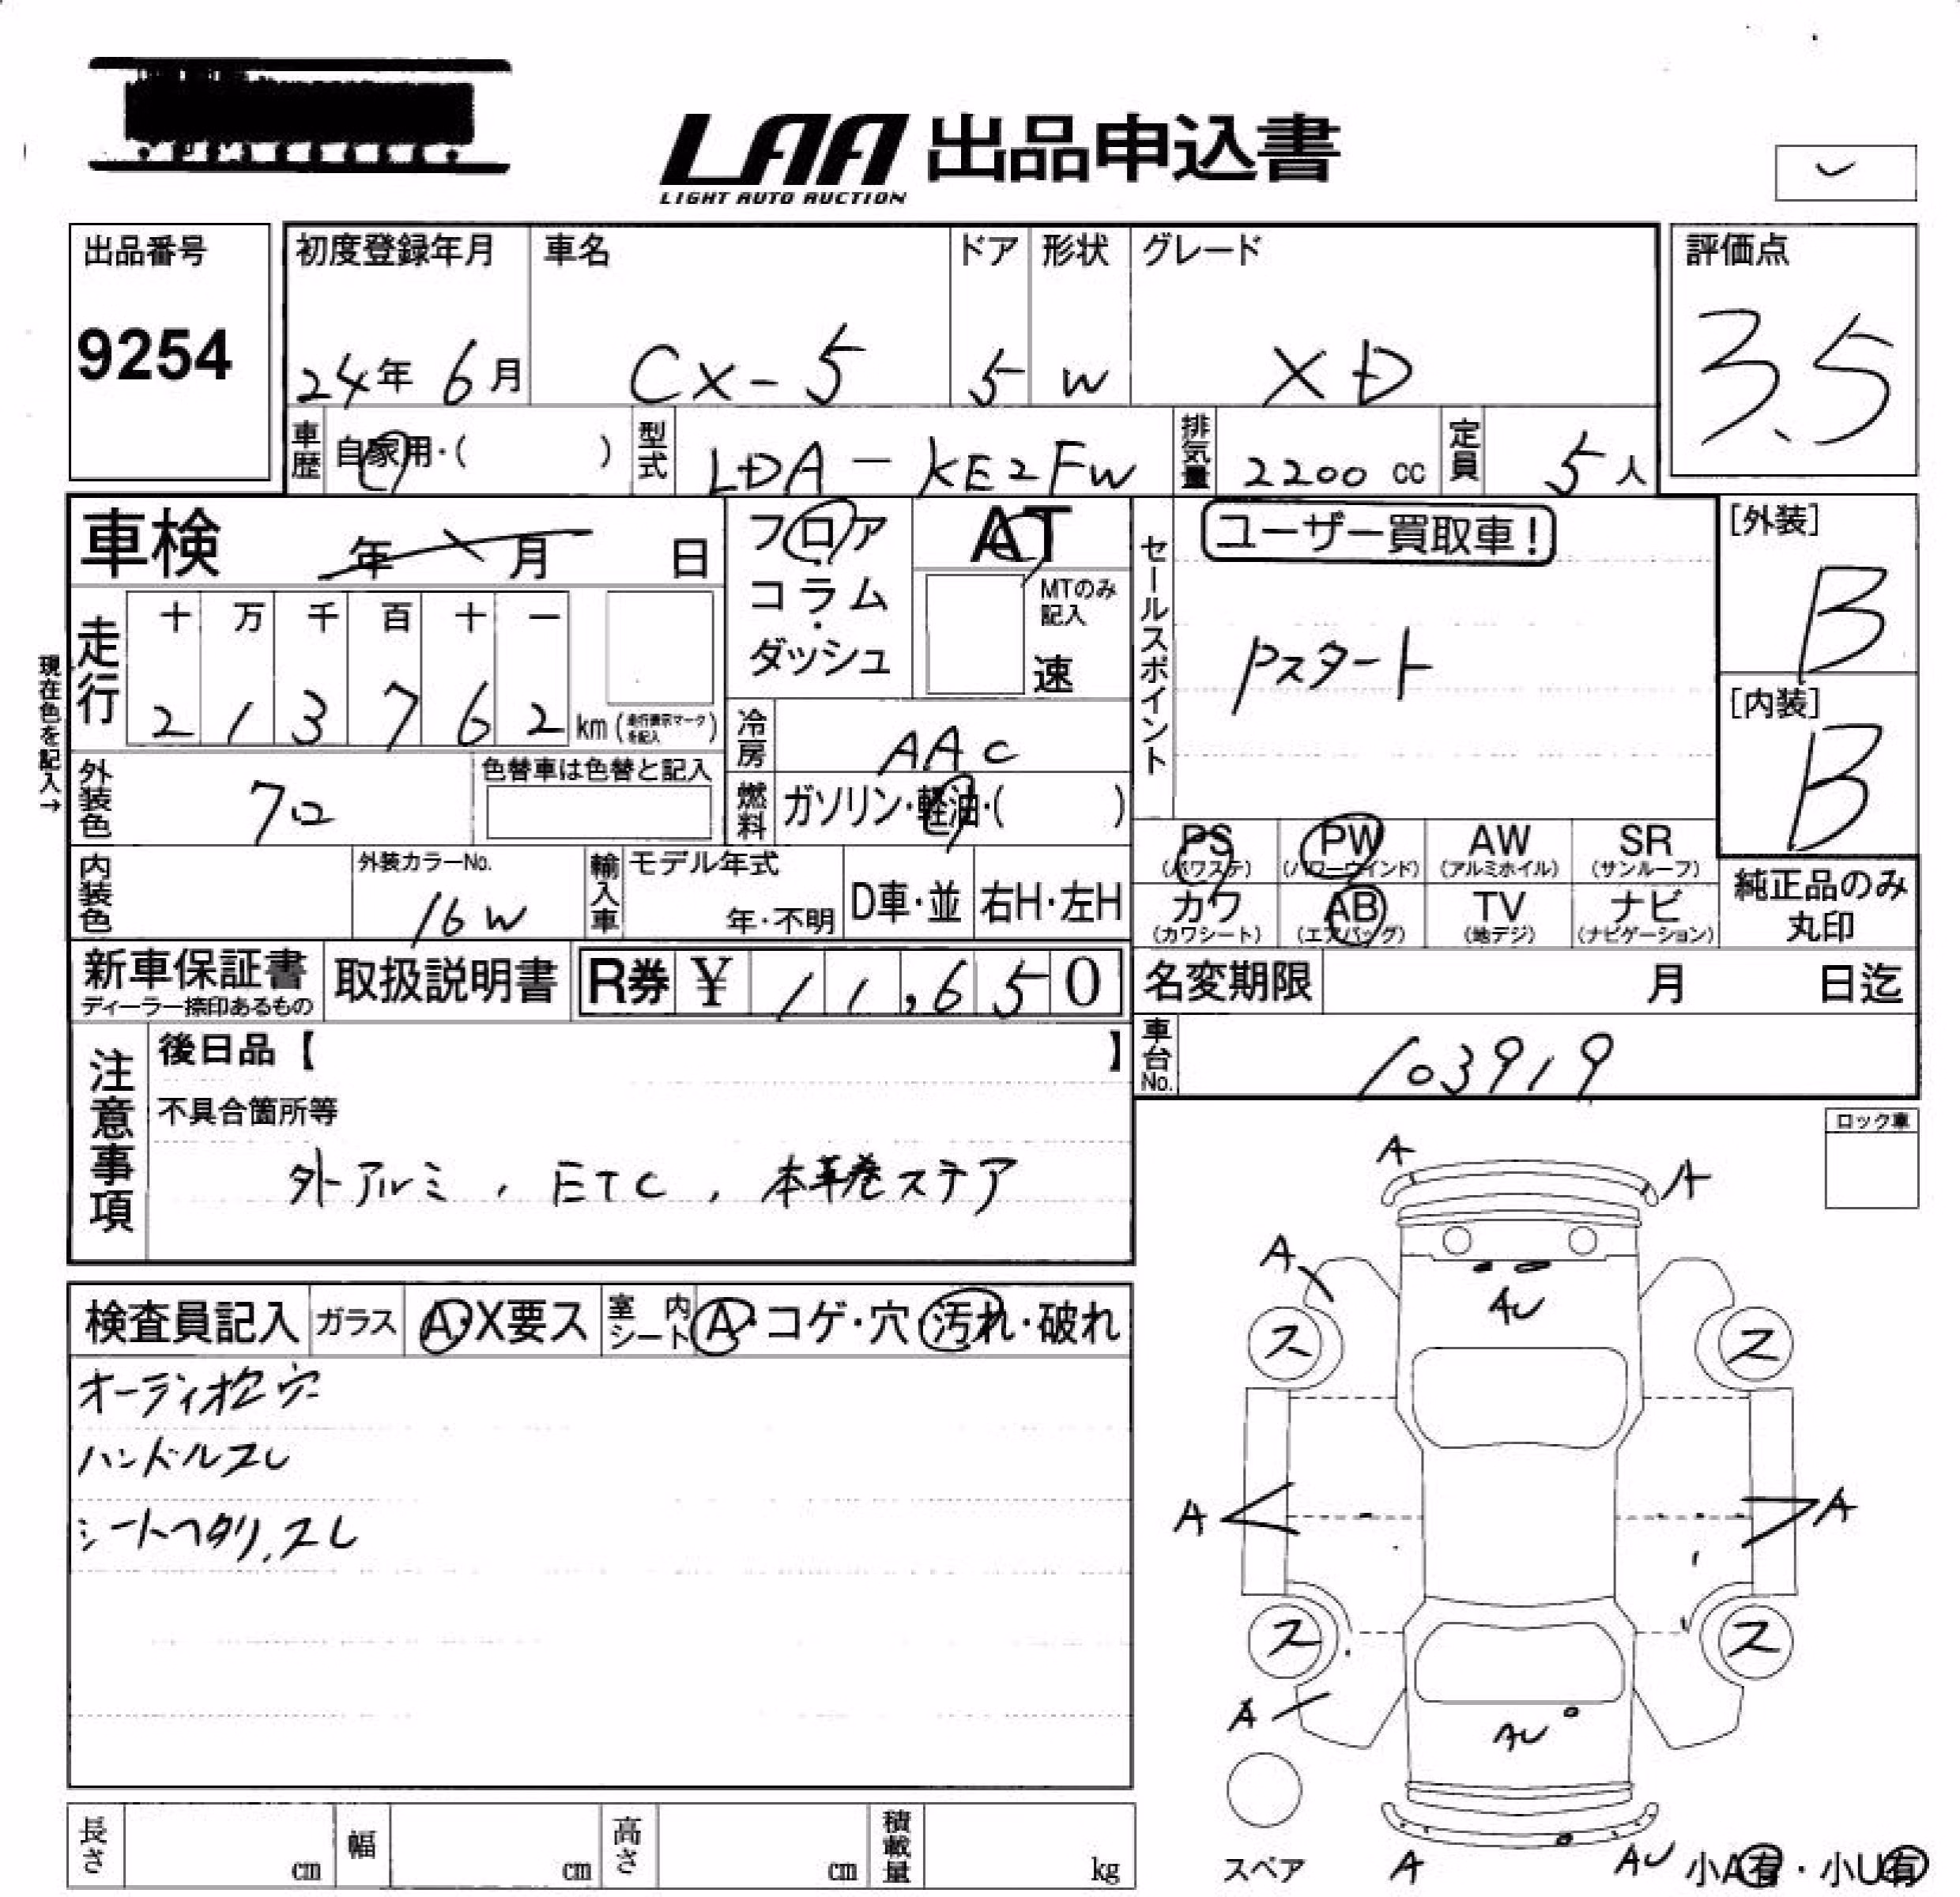 LAA 出品申込書
LIGHT AUTO AUCTION
出品番号
9254
初度登録年月 車名 ドア 形状 グレード
24年 6月 CX-5 5 W XD
評価点
3.5
車歴 自家用・( ) 型式 LDA-KE2FW 排気量 2200 cc 定員 5人
車検 年 月 日
フロア
コラム
ダッシュ
AT
MTのみ
記入
速
セールスポイント
ユーザー買取車!
Pスタート
[外装]
B
[内装]
B
現在色を記入→
走行 十 万 千 百 十 一
2 1 3 7 6 2 km (走行表示マークを記入)
冷房 AAC
外装色 クロ 色替車は色替と記入
燃料 ガソリン・軽油・( )
PS PW AW SR
(パワステ) (パワーウインド) (アルミホイル) (サンルーフ)
カワ AB TV ナビ
(カワシート) (エアバッグ) (地デジ) (ナビゲーション)
純正品のみ
丸印
内装色 外装カラーNo. 16W 輸入車 モデル年式 年・不明 D車・並 右H・左H
新車保証書
ディーラー捺印あるもの
取扱説明書 R券 ¥ 11,650
名変期限 月 日迄
車台No. 103919
注意事項
後日品【 】
不具合箇所等
外アルミ, ETC, 本革巻ステア
ロック車
検査員記入 ガラス A・X要ス 室内シート A・コゲ・穴 汚れ・破れ
オーディオ抜穴
ハンドルスレ
シートヘタリ,スレ
A A
A
AU
ス ス
A A
ス ス
A
AU
スペア
A AU
小A有・小U有
長さ cm 幅 cm 高さ cm 積載量 kg